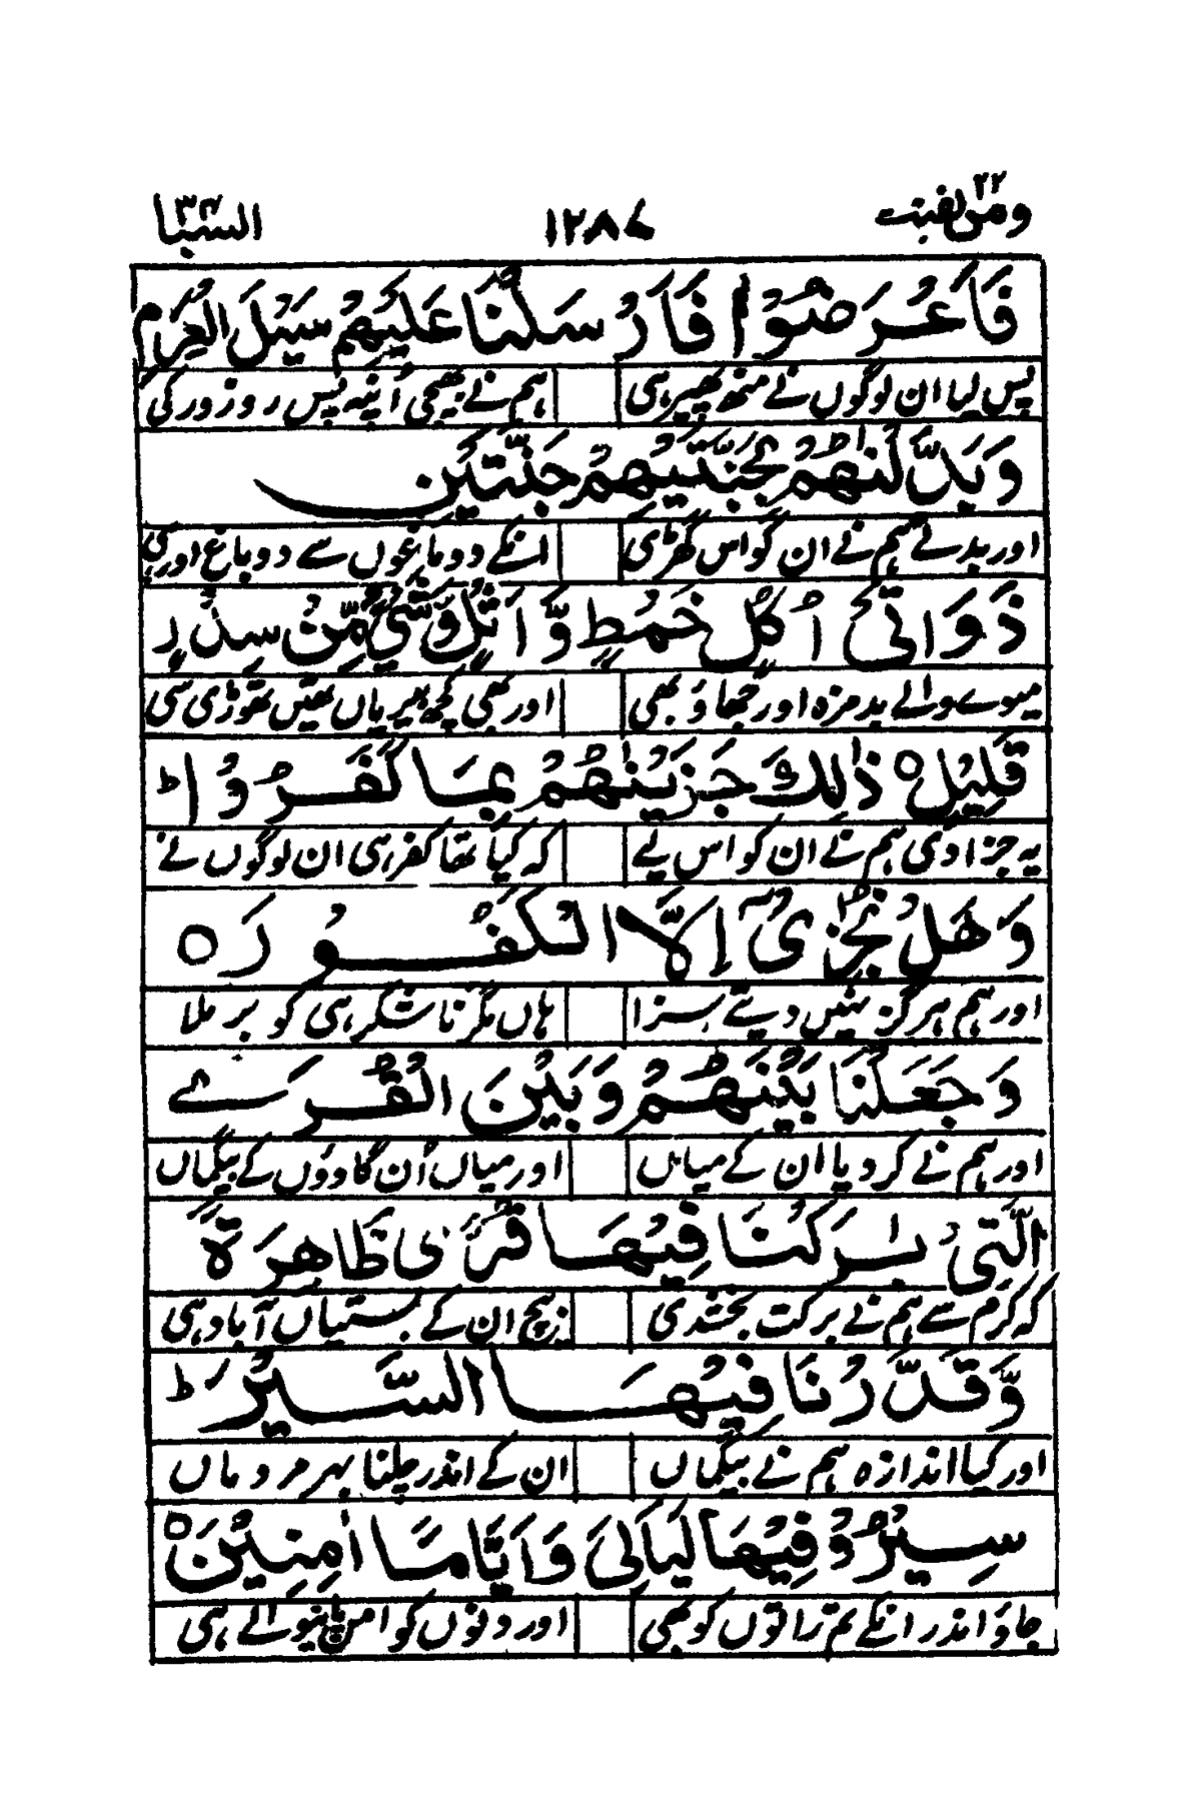 ومن یقنت ۲۲ ۱۲۸۷ السبا ۳۴
فَاَعْرَضُوْا فَاَرْسَلْنَا عَلَیْهِمْ سَیْلَ الْعَرِمِ
پس لیا ان لوگوں نے منھ پھیر ہی ہم نے بھیجی اُنپہ پس رو زور کی
وَبَدَّلْنٰهُمْ بِجَنَّتَیْهِمْ جَنَّتَیْنِ
اور بدلے ہم نے ان کو اس گھڑی انکے دو باغوں سے دو باغ اور ہی
ذَوَاتَیْ اُكُلٍ خَمْطٍ وَّاَثْلٍ وَّشَیْءٍ مِّنْ سِدْرٍ
میوے والے بدمزہ اور جھاؤ بھی اور بھی کچھ بیریاں تھیں تھوڑی سی
قَلِیْلٍ ۝ ذٰلِكَ جَزَیْنٰهُمْ بِمَا كَفَرُوْا ؕ
یہ جزا دی ہم نے ان کو اس لیے کہ کیا تھا کفر ہی ان لوگوں نے
وَهَلْ نُجٰزِیْۤ اِلَّا الْكَفُوْرَ ۝
اور ہم ہرگز نہیں دیتے سزا ہاں مگر ناشکر ہی کو برملا
وَجَعَلْنَا بَیْنَهُمْ وَبَیْنَ الْقُرَے
اور ہم نے کر دیا ان کے میاں اور میاں اُن گاووں کے بیگماں
الَّتِیْ بٰرَكْنَا فِیْهَا قُرًی ظَاهِرَةً
کہ کرم سے ہم نے برکت بخشدی بیچ ان کے بستیاں آباد ہی
وَّقَدَّرْنَا فِیْهَا السَّیْرَ ؕ
اور کیا اندازہ ہم نے بیگماں ان کے اندر چلنا بہر مردماں
سِیْرُوْا فِیْهَا لَیَالِیَ وَاَیَّامًا اٰمِنِیْنَ ۝
جاؤ اندر انکے تم راتوں کو بھی اور دنوں کو امن والے ہی